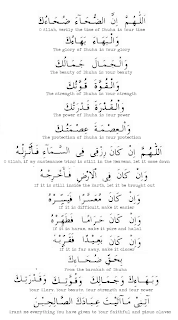 اَللّٰهُمَّ اِنَّ الضُّحَآءَ ضُحَاءُكَ
O Allah, verily the time of Dhuha is Your time
وَالْبَهَاءَ بَهَاءُكَ
The glory of Dhuha is Your glory
وَالْجَمَالَ جَمَالُكَ
The beauty of Dhuha is Your beauty
وَالْقُوَّةَ قُوَّتُكَ
The strength of Dhuha is Your strength
وَالْقُدْرَةَ قُدْرَتُكَ
The power of Dhuha is Your power
وَالْعِصْمَةَ عِصْمَتُكَ
The protection of Dhuha is Your protection
اَللّٰهُمَّ اِنْ كَانَ رِزْقِى فِى السَّمَآءِ فَأَنْزِلْهُ
O Allah, if my sustenance is still in the heavens, let it come down
وَاِنْ كَانَ فِى اْلاَرْضِ فَأَخْرِجْهُ
If it is still inside the Earth, let it be brought out
وَاِنْ كَانَ مُعَسَّرًا فَيَسِّرْهُ
If it is difficult, make it easier
وَاِنْ كَانَ حَرَامًا فَطَهِّرْهُ
If it is haram, make it pure and halal
وَاِنْ كَانَ بَعِيْدًا فَقَرِّبْهُ
If it is far away, make it closer
بِحَقِّ ضُحَاءِكَ
From the barakah of Dhuha
وَبَهَاءِكَ وَجَمَالِكَ وَقُوَّتِكَ وَقُدْرَتِكَ
Your glory, Your beauty, Your strength and Your power
آتِنِىْ مَآاَتَيْتَ عِبَادَكَ الصَّالِحِيْنَ
everything you have given to your faithful and pious slaves